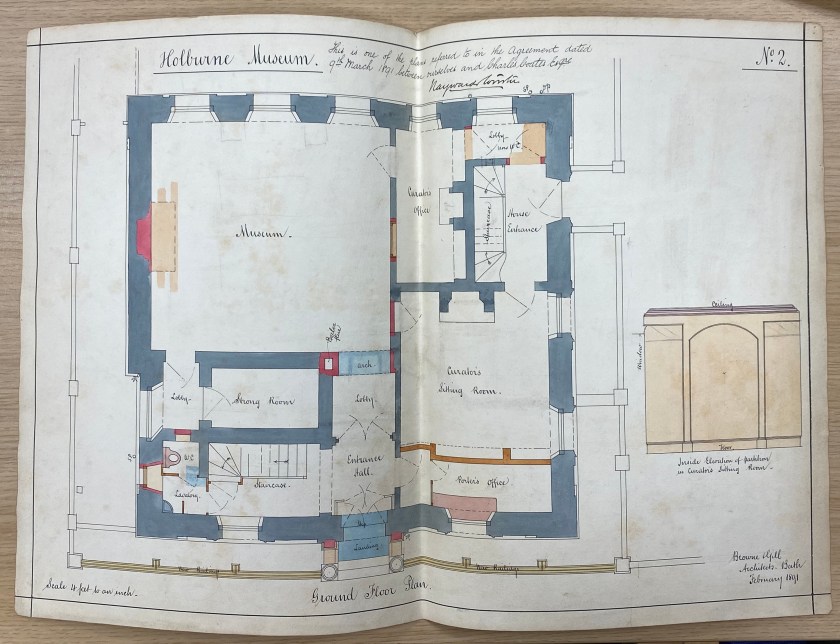 Holburne Museum.
This is one of the plans referred to in the Agreement dated
9th March 1891 between ourselves and Charles Coates Esqre
No. 2.
Lobby
Curator's
Office
Staircase
House
Entrance
Museum.
Ceiling
Window
arch
Curator's
Sitting Room.
Lobby.
Strong Room
Lobby.
Entrance
Hall.
W.C.
Floor
Inside Elevation of partition
in Curator's Sitting Room.
Staircase.
Porter's Office
Lavatory.
Step
Landing
New Railing
New Railing
Browne & Gill
Architects. Bath
February 1891
Scale 4 feet to an inch.
Ground Floor Plan.